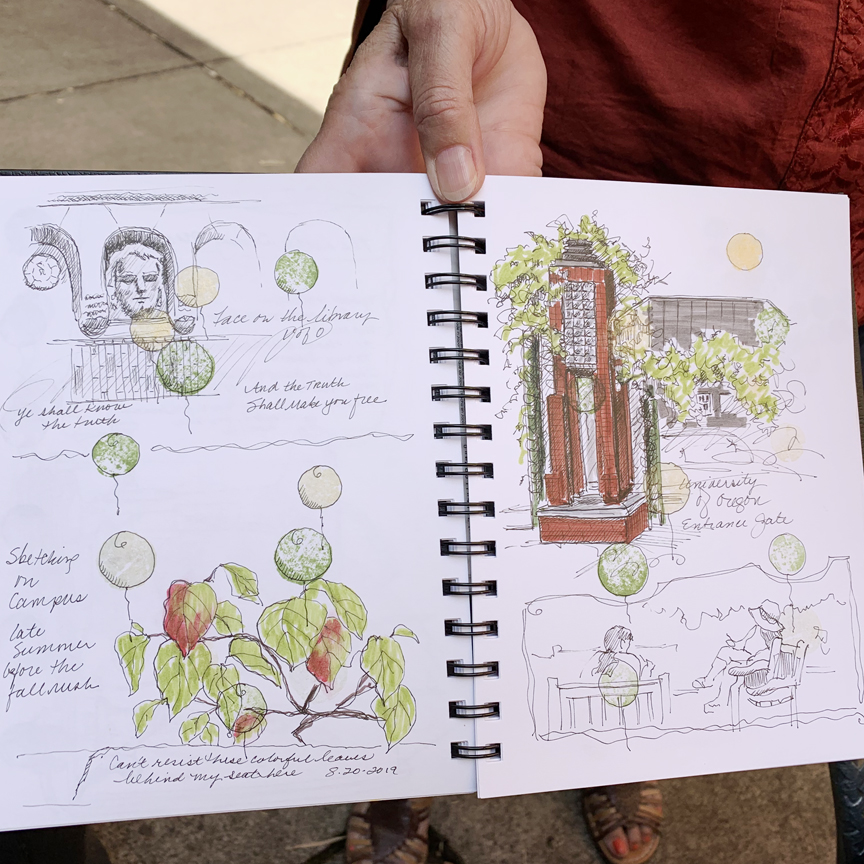 Face on the library
U of O
Ye shall know
the truth
And the Truth
Shall Make you free
Sketching
on
Campus
late
Summer
before the
fall rush
Can't resist these colorful leaves
behind my seat here 8.20-2019
University
of Oregon
Entrance Gate